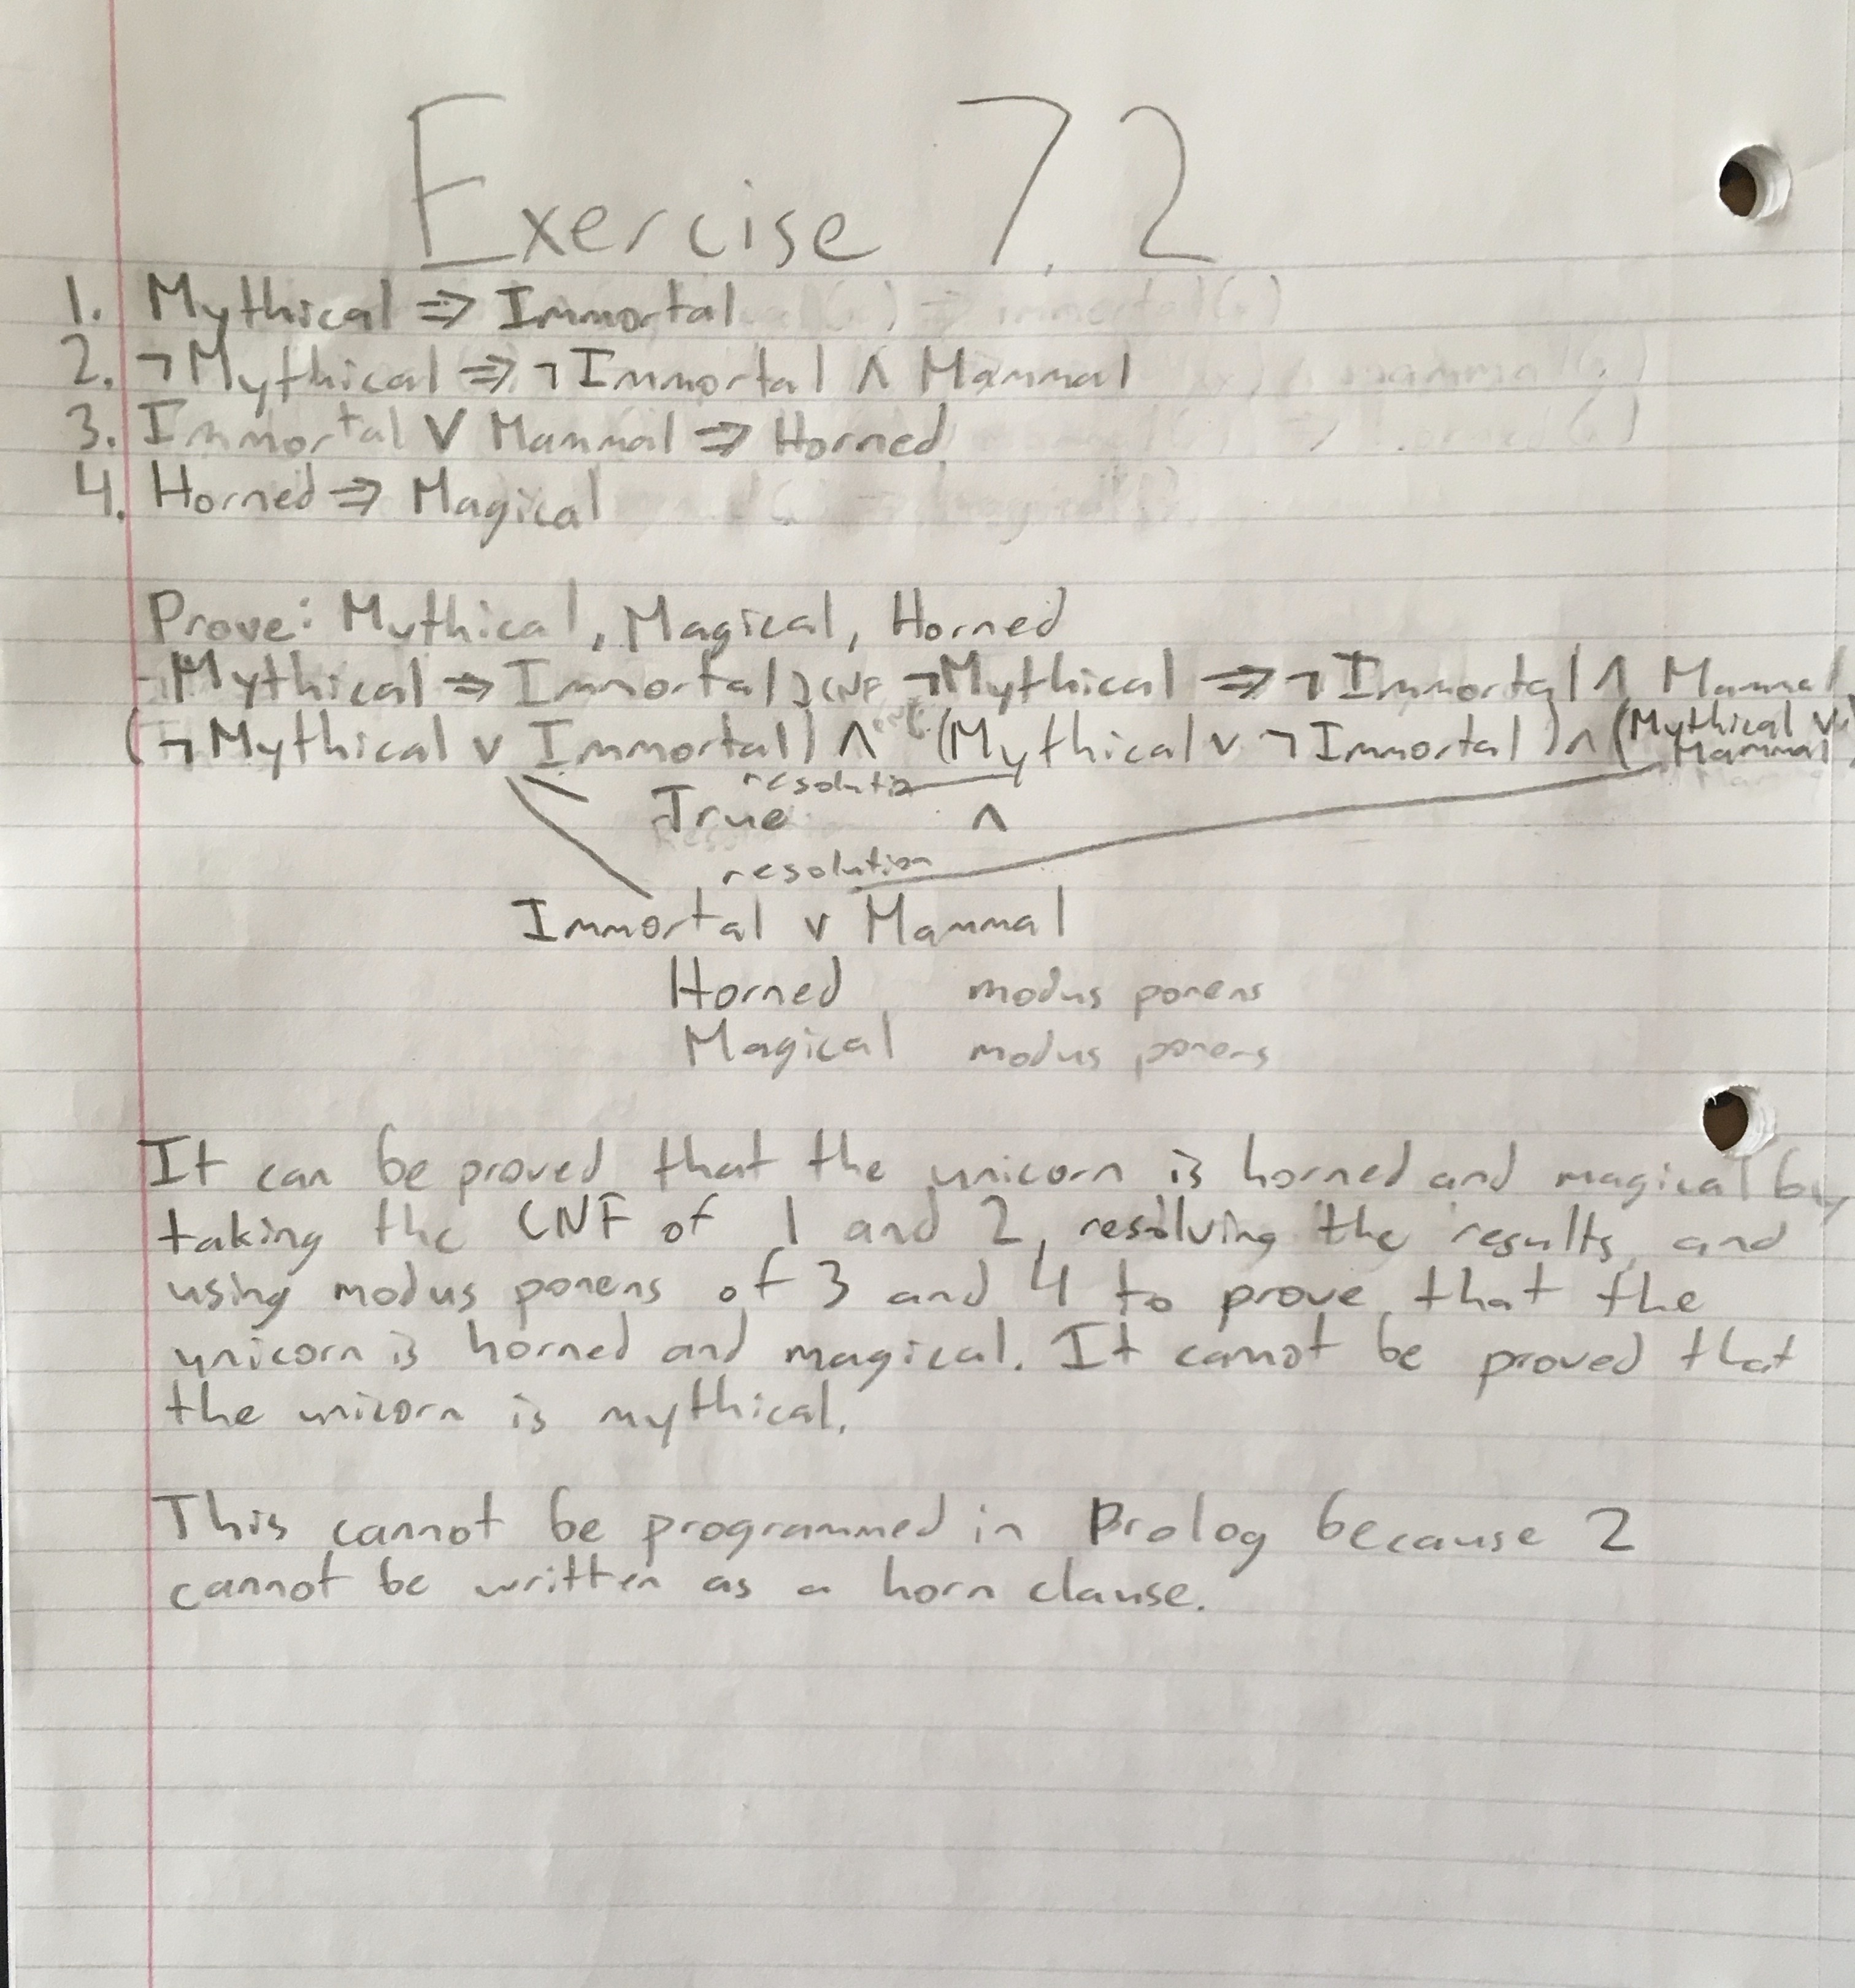 Exercise 7.2
1. Mythical ⇒ Immortal
2. ¬Mythical ⇒ ¬Immortal ∧ Mammal
3. Immortal ∨ Mammal ⇒ Horned
4. Horned ⇒ Magical
Prove: Mythical, Magical, Horned
Mythical ⇒ Immortal } CNF ¬Mythical ⇒ ¬Immortal ∧ Mammal
(¬Mythical ∨ Immortal) ∧ (Mythical ∨ ¬Immortal) ∧ (Mythical ∨ Mammal)
resolutio
True ∧
resolution
Immortal ∨ Mammal
Horned modus ponens
Magical modus ponens
It can be proved that the unicorn is horned and magical by
taking the CNF of 1 and 2, resolving the results, and
using modus ponens of 3 and 4 to prove that the
unicorn is horned and magical. It cannot be proved that
the unicorn is mythical.
This cannot be programmed in Prolog because 2
cannot be written as a horn clause.